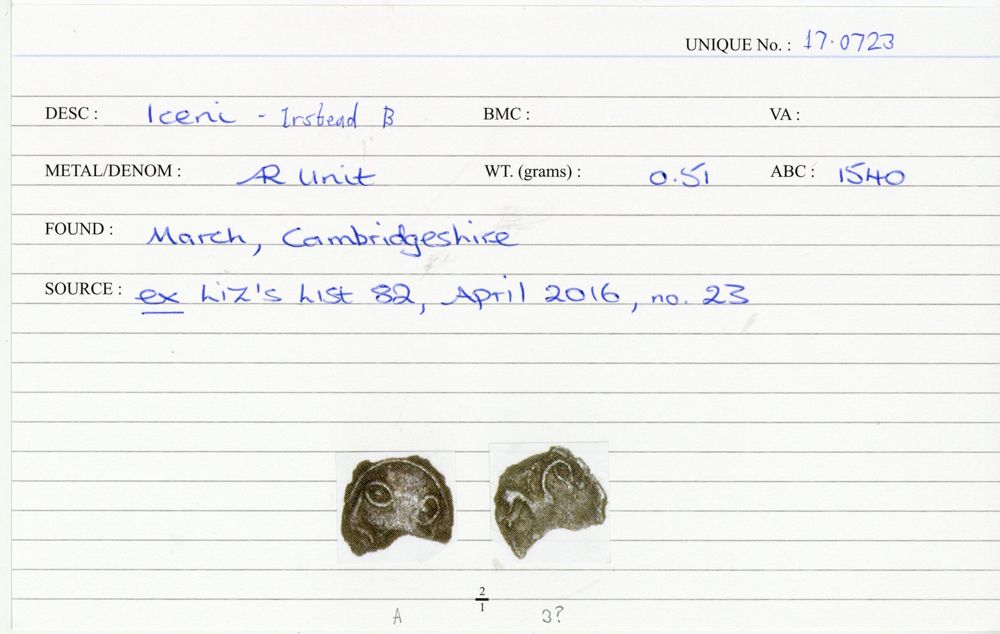 UNIQUE No. : 17.0723
DESC : Iceni - Irstead B BMC : VA :
METAL/DENOM : AR Unit WT. (grams) : 0.51 ABC : 1540
FOUND : March, Cambridgeshire
SOURCE : ex Liz's List 82, April 2016, no. 23
2
1
A 3?